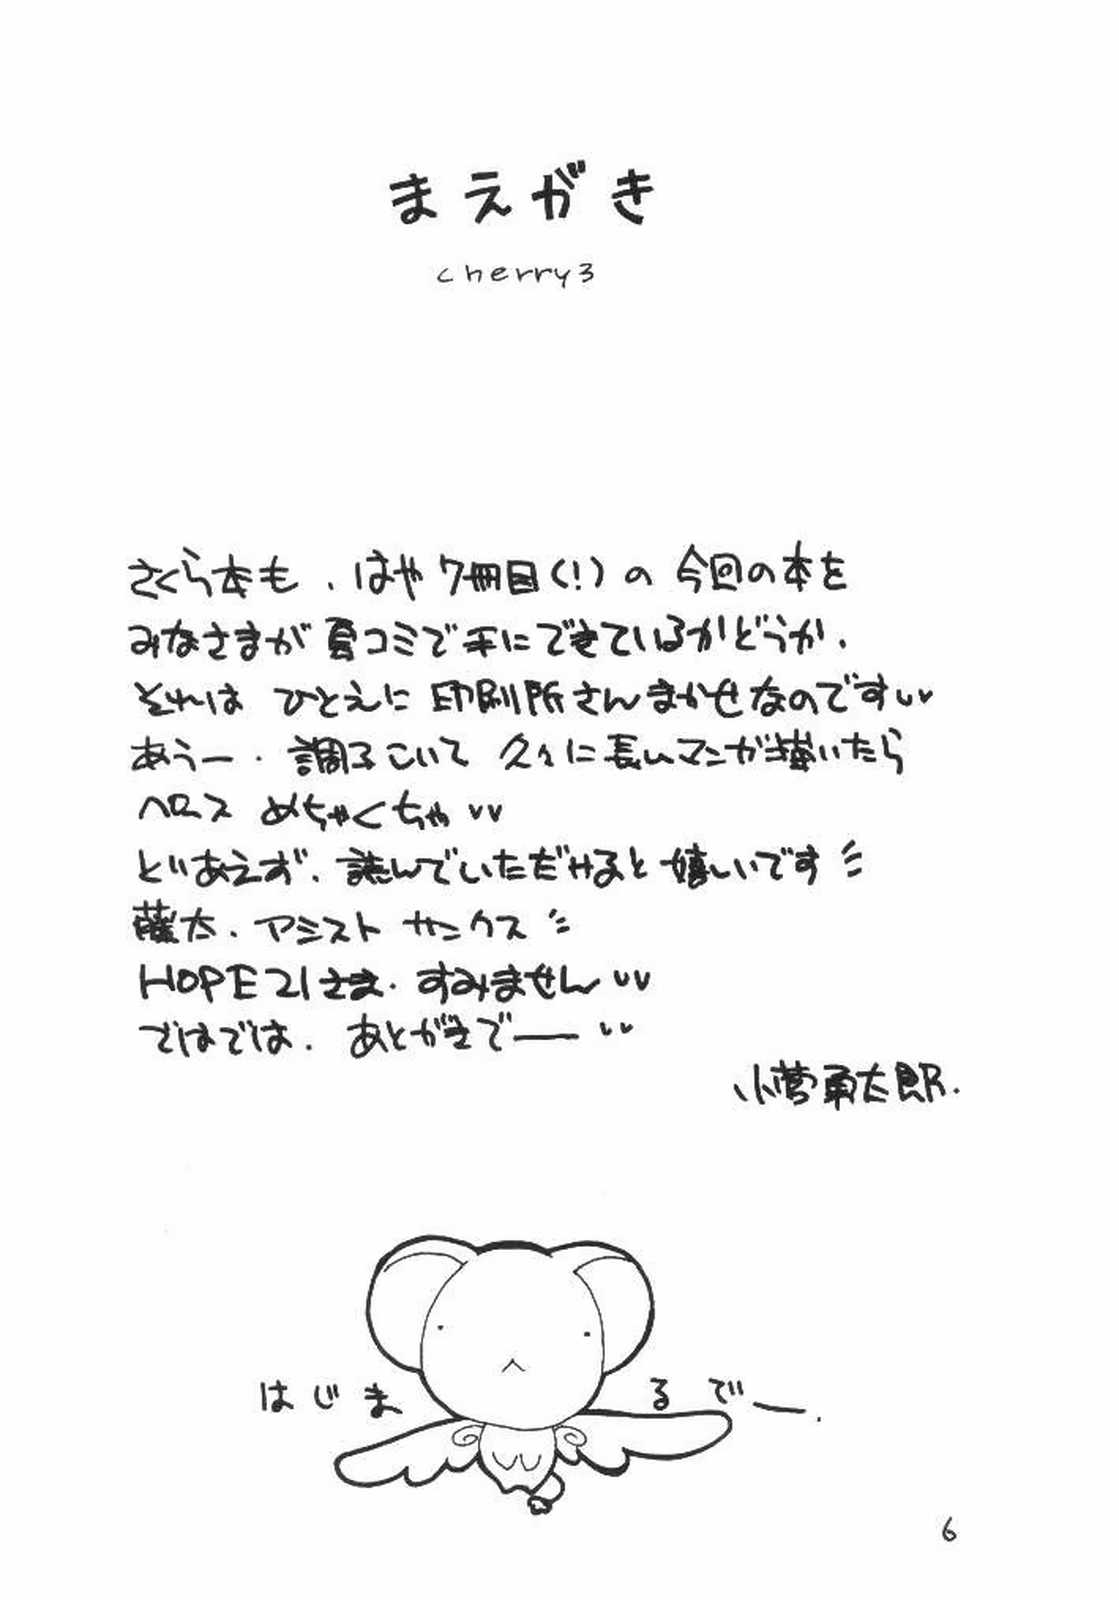 まえがき
cherry3
さくら本も、はや7冊目(!)の 今回の本を
みなさまが 夏コミで手にできているかどうか、
それは ひとえに 印刷所さんまかせなのです
あうー、調子こいて 久々に長いマンガ描いたら
ペース めちゃくちゃ
とりあえず、読んでいただけると 嬉しいです
藤太、アシスト サンクス
HOPE21さま、すみません
ではでは、あとがきでー
小菅勇太郎.
はじまるでー.
6